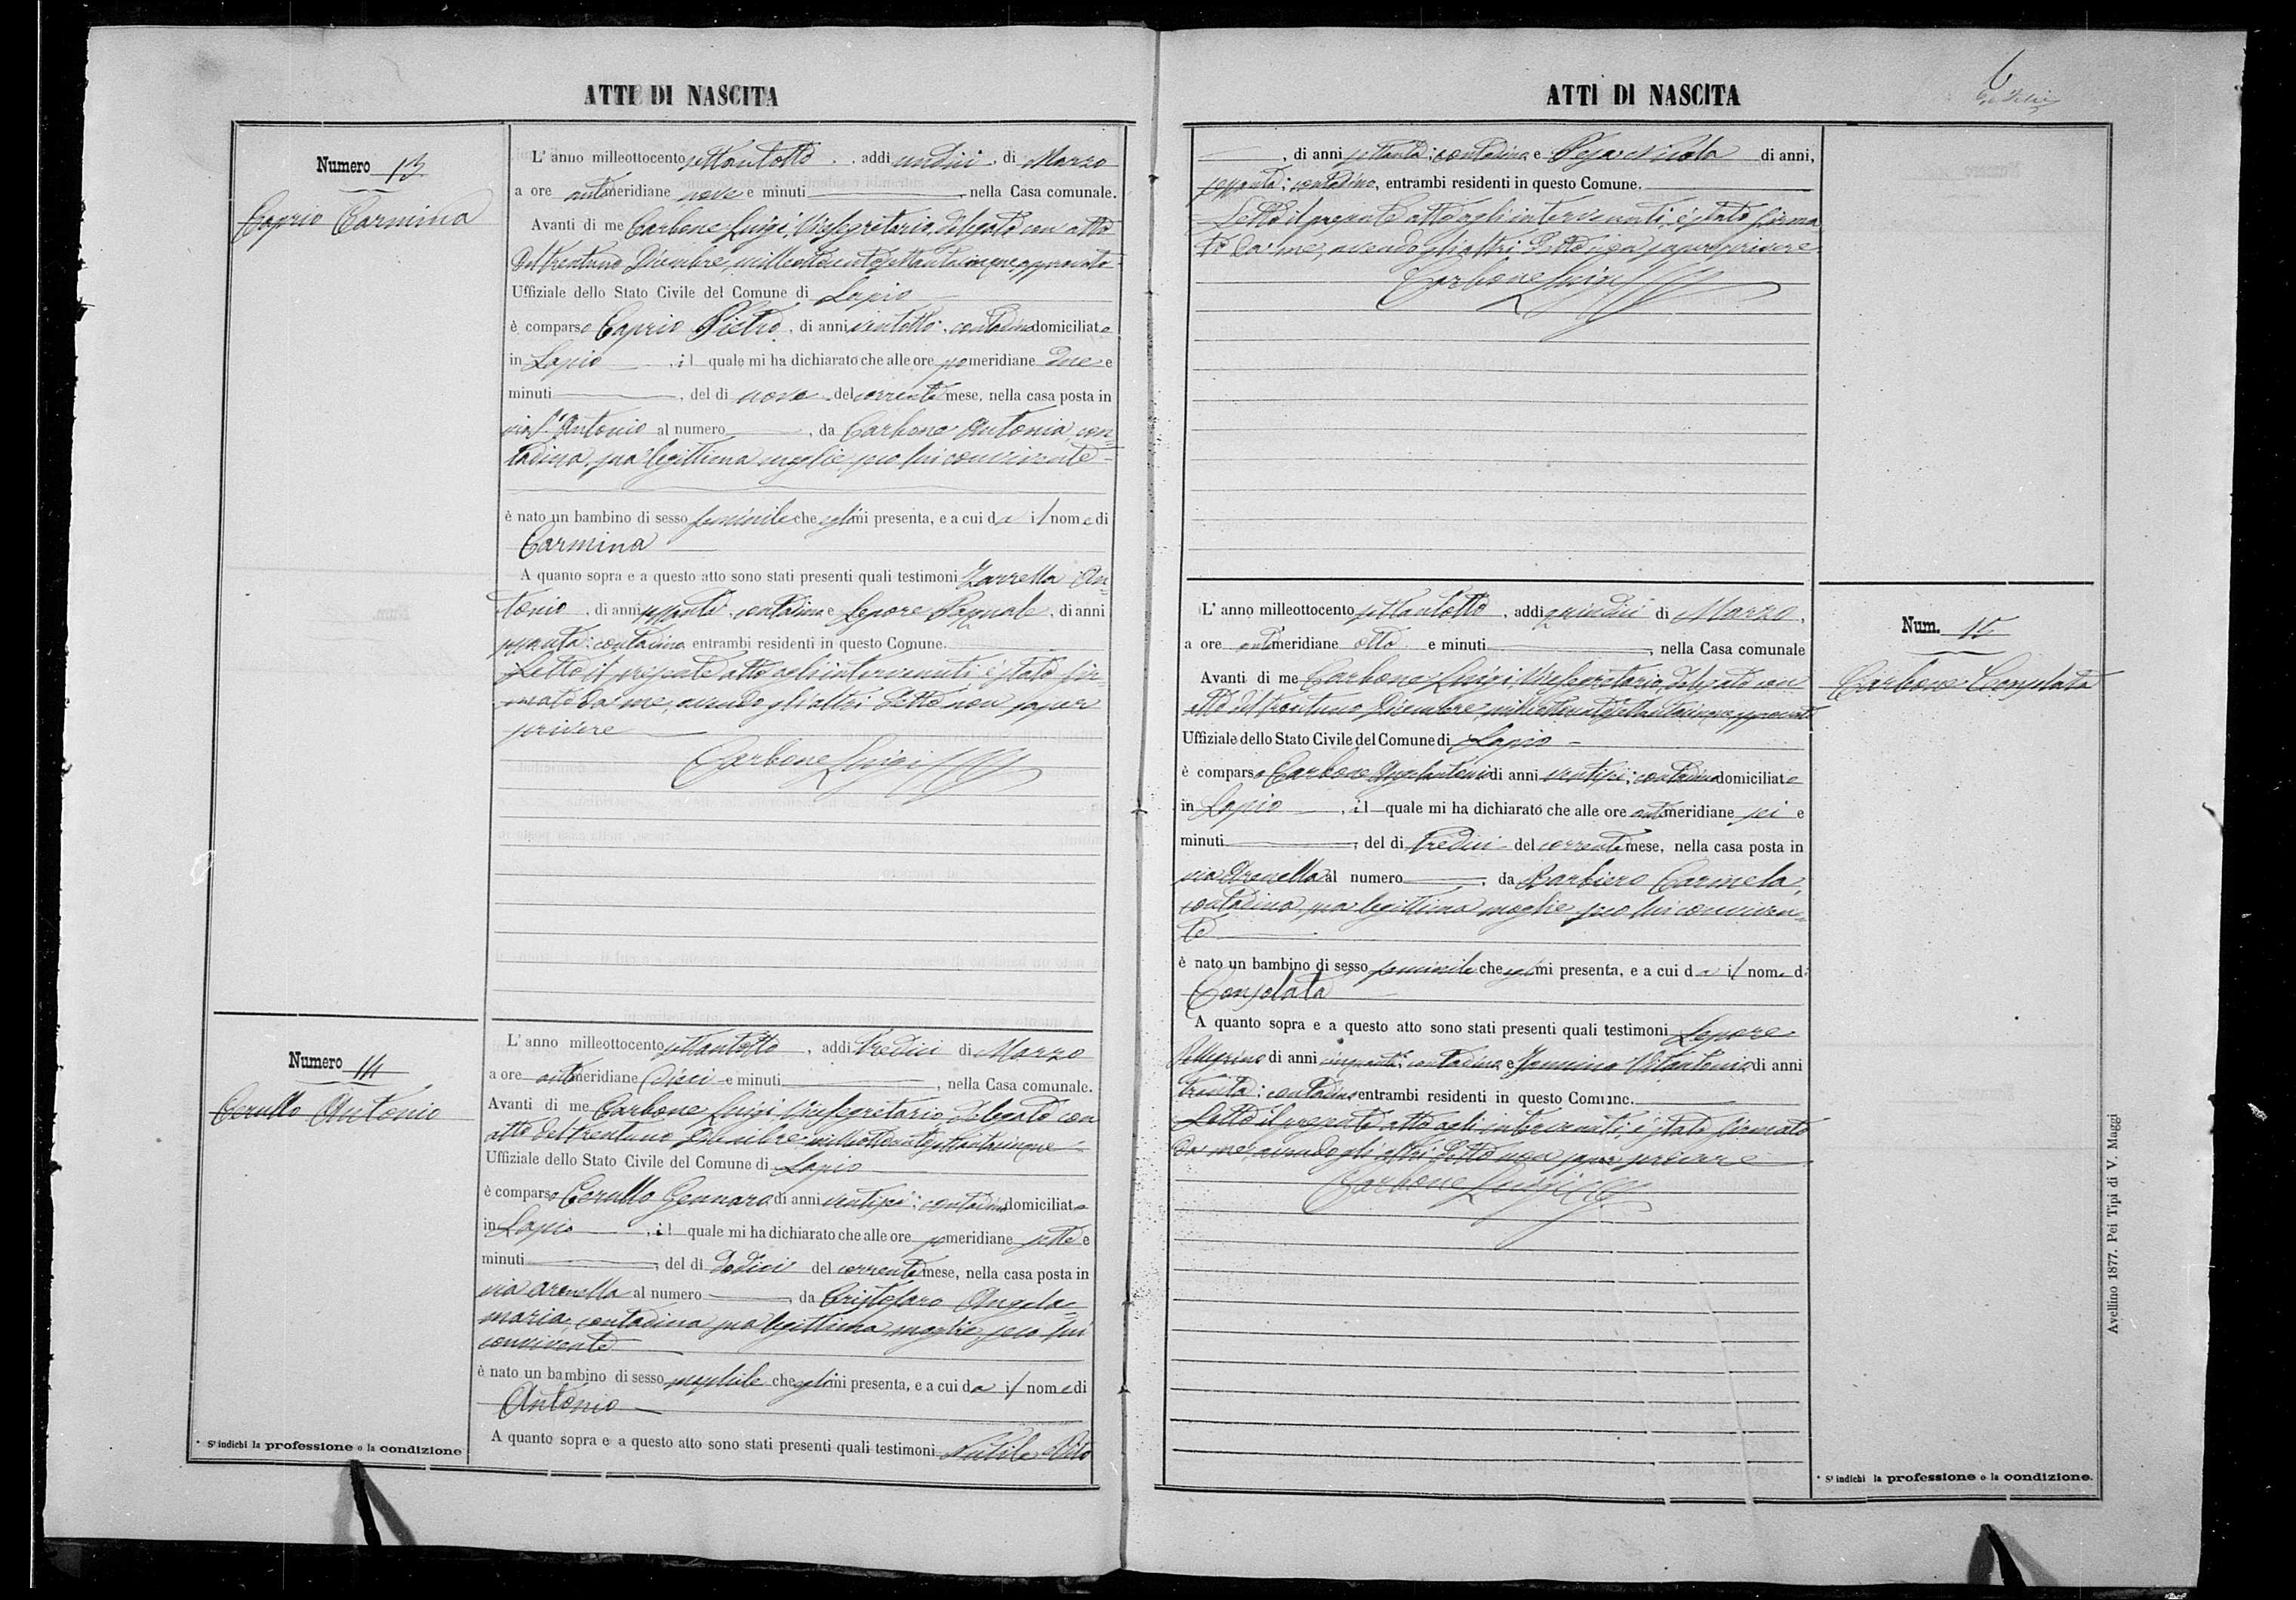 ATTI DI NASCITA
Numero 13
Caprio Carmina
L' anno milleottocento settantotto, addi undici di Marzo
a ore antimeridiane nove e minuti nella Casa comunale.
Avanti di me Carbone Luigi, Vicesegretario delegato con atto
del trentuno Dicembre milleottocentosettantacinque, approvato
Uffiziale dello Stato Civile del Comune di Lapio
è comparso Caprio Pietro, di anni ventotto, contadino domiciliato
in Lapio, il quale mi ha dichiarato che alle ore pomeridiane due e
minuti, del di nove del corrente mese, nella casa posta in
via S. Antonio al numero, da Carbone Antonia, con=
tadina, sua legittima moglie, seco lui convivente
è nato un bambino di sesso feminile che egli mi presenta, e a cui dà il nome di
Carmina
A quanto sopra e a questo atto sono stati presenti quali testimoni Zarrella An=
tonio, di anni sessanta, contadino e Lepore Pasquale, di anni
sessanta, contadino entrambi residenti in questo Comune.
Letto il presente atto agli intervenuti, è stato fir=
mato da me, avendo gli altri detto non saper
scrivere
Carbone Luigi
Numero 14
Cerullo Antonio
L' anno milleottocento settantotto, addi tredici di Marzo
a ore antimeridiane dieci e minuti, nella Casa comunale.
Avanti di me Carbone Luigi Vicesegretario, delegato con
atto del trentuno Dicembre milleottocentosettantacinque
Uffiziale dello Stato Civile del Comune di Lapio
è comparso Cerullo Gennaro di anni ventisei, contadino domiciliato
in Lapio, il quale mi ha dichiarato che alle ore pomeridiane sette e
minuti, del di dodici del corrente mese, nella casa posta in
via Arenella al numero, da Cristofaro Angela=
maria, contadina sua legittima moglie, seco lui
convivente
è nato un bambino di sesso maschile che egli mi presenta, e a cui dà il nome di
Antonio
A quanto sopra e a questo atto sono stati presenti quali testimoni Nutile Vito
* S' indichi la professione o la condizione
ATTI DI NASCITA
6
, di anni settanta, contadino e Pesa Nicola di anni,
sessanta, contadino, entrambi residenti in questo Comune.
Letto il presente atto agli intervenuti, è stato firma
to da me, avendo gli altri detto non saper scrivere
Carbone Luigi
Num. 15
Carbone Consolata
L' anno milleottocento settantotto, addi quindici di Marzo,
a ore antimeridiane otto e minuti, nella Casa comunale
Avanti di me Carbone Luigi, Vicesegretario, delegato con
atto del trentuno Dicembre milleottocentosettantacinque, approvato
Uffiziale dello Stato Civile del Comune di Lapio
è comparso Carbone Angelantonio di anni ventisei, contadino domiciliato
in Lapio, il quale mi ha dichiarato che alle ore antimeridiane sei e
minuti, del di tredici del corrente mese, nella casa posta in
via Arenella al numero, da Barbiero Carmela,
contadina, sua legittima moglie, seco lui conviven=
te
è nato un bambino di sesso feminile che egli mi presenta, e a cui dà il nome di
Consolata
A quanto sopra e a questo atto sono stati presenti quali testimoni Lepore
Pellegrino di anni cinquanta, contadino, e Jannino Vitantonio di anni
trenta, contadino entrambi residenti in questo Comune.
Letto il presente atto agli intervenuti, è stato firmato
da me avendo gli altri detto non saper scrivere
Carbone Luigi
* S' indichi la professione o la condizione.
Avellino 1877. Pei Tipi di V. Maggi